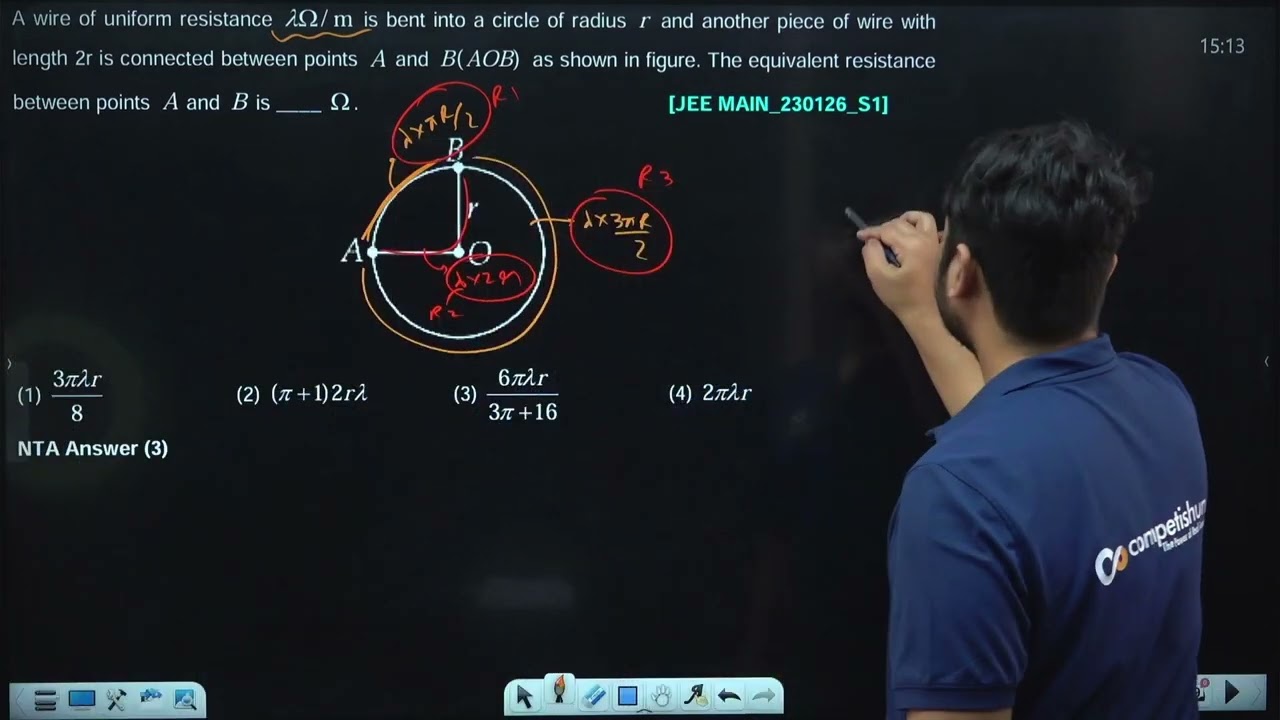 A wire of uniform resistance λΩ/m is bent into a circle of radius r and another piece of wire with
15:13
length 2r is connected between points A and B(AOB) as shown in figure. The equivalent resistance
between points A and B is ____ Ω.
[JEE MAIN_230126_S1]
R1
λ×πR/2
B
R3
r
λ×3πR/2
A
O
λ×2r
R2
(1) 3πλr/8
(2) (π+1)2rλ
(3) 6πλr/3π+16
(4) 2πλr
NTA Answer (3)
competishun